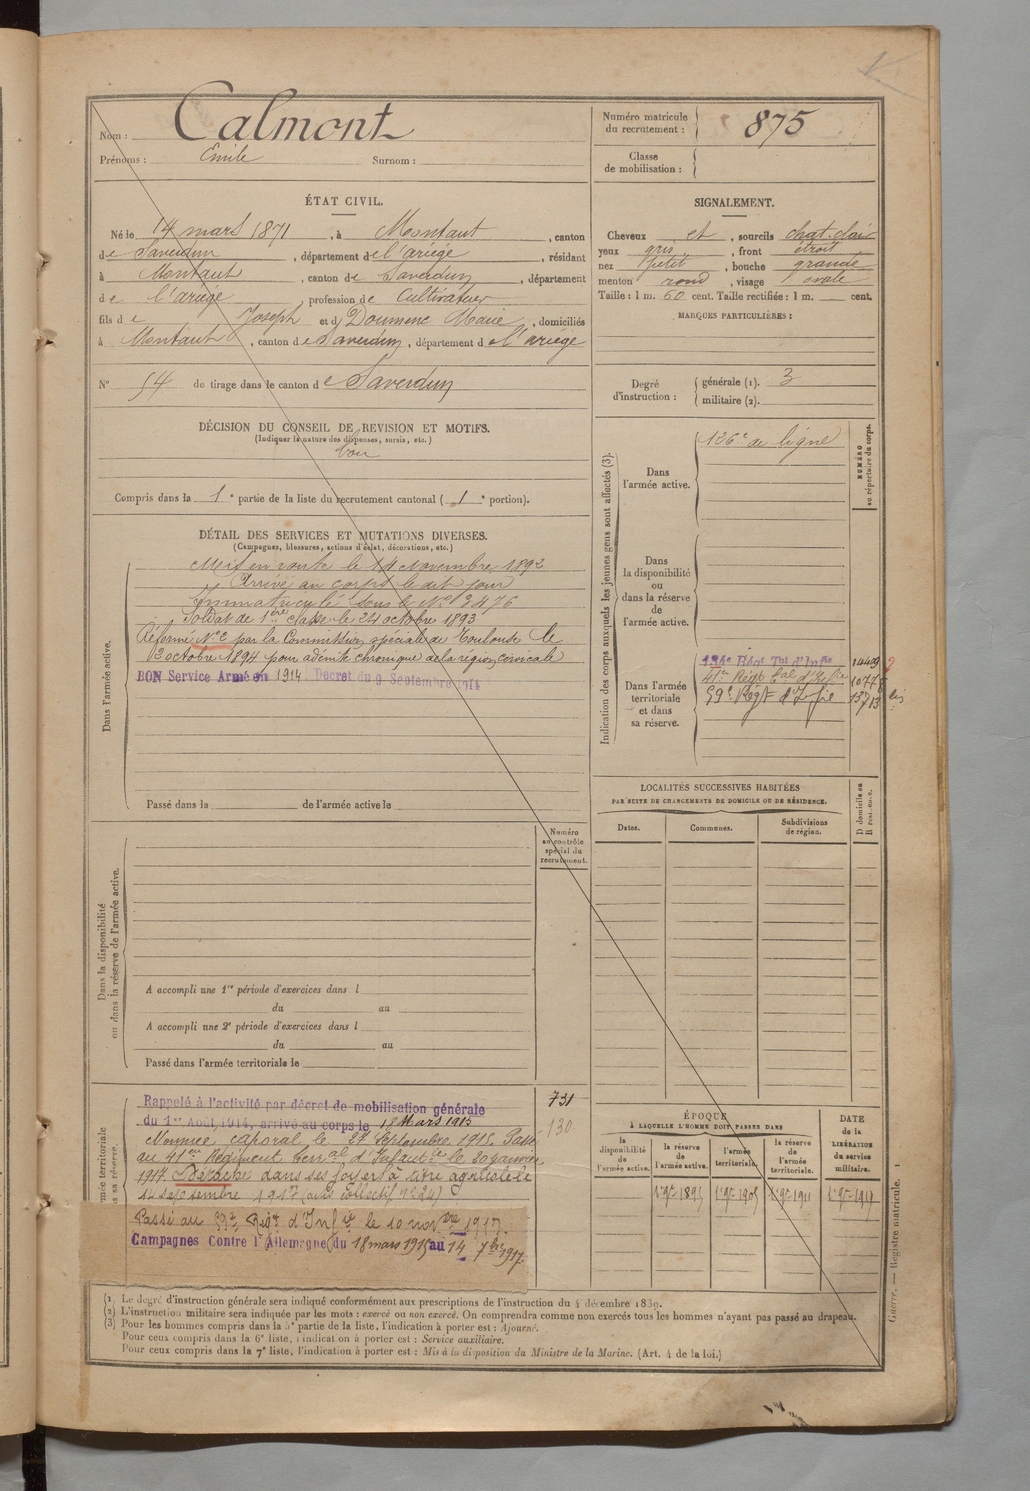 Nom : Calmont
Prénoms : Emile Surnom :
Numéro matricule
du recrutement : 875
Classe
de mobilisation :
ÉTAT CIVIL.
Né le 14 mars 1871, à Montaut, canton
de Saverdun, département de l'ariège, résidant
à Montaut, canton de Saverdun, département
de l'ariège, profession de Cultivateur
fils de Joseph et de Doumenc Marie, domiciliés
à Montaut, canton de Saverdun, département de l'ariège
N° 54 de tirage dans le canton de Saverdun
SIGNALEMENT.
Cheveux et, sourcils chat. clair
yeux gris, front étroit
nez petit, bouche grande
menton rond, visage ovale
Taille : 1 m. 60 cent. Taille rectifiée : 1 m. cent.
MARQUES PARTICULIÈRES :
Degré
d'instruction :
générale (1). 3
militaire (2).
DÉCISION DU CONSEIL DE REVISION ET MOTIFS.
(Indiquer la nature des dispenses, sursis, etc.)
bon
Compris dans la 1e partie de la liste du recrutement cantonal (1e portion).
DÉTAIL DES SERVICES ET MUTATIONS DIVERSES.
(Campagnes, blessures, actions d'éclat, décorations, etc.)
Dans l'armée active.
Mis en route le 14 Novembre 1892
Arrivé au corps le dit jour
Immatriculé sous le N°
Soldat de 1ère classe le 24 octobre 1893
Réformé N°2 par la Commission spéciale de Toulouse le
octobre 1894 pour adénite chronique de la région cervicale
BON Service Armé en 1914 Décret du 9 Septembre 1914
Passé dans la de l'armée active le
Indication des corps auxquels les jeunes gens sont affectés (3).
NUMÉRO
au répertoire du corps.
Dans
l'armée active.
126e de ligne
Dans
la disponibilité
ou
dans la réserve
de
l'armée active.
Dans l'armée
territoriale
et dans
sa réserve.
134e Régt Tal d'Infie
41e Régt Tal d'Infie
59e Régt d'Infie
LOCALITÉS SUCCESSIVES HABITÉES
PAR SUITE DE CHANGEMENTS DE DOMICILE OU DE RÉSIDENCE.
Dates. Communes. Subdivisions
de région.
D domicile ou
R résidence.
Numéro
au contrôle
spécial du
recrutement.
Dans la disponibilité
ou dans la réserve de l'armée active.
A accompli une 1re période d'exercices dans l
du au
A accompli une 2e période d'exercices dans l
du au
Passé dans l'armée territoriale le
731
130
Rappelé à l'activité par décret de mobilisation générale
du 1er Août 1914, arrivé au corps le 18 Mars 1915
Nommé caporal le 27 Septembre 1915. Passé
au 41em Régiment terral d'Infautie le 30 janvier
1917. Détaché dans ses foyers à titre agricole le
14 septembre 1917 (avis collectif n° 24)
Passé au 59e Régt d'Infie le 10 novbre 1917.
Campagnes Contre l'Allemagne du 18 mars 1915 au 14 7bre 1917.
ÉPOQUE
À LAQUELLE L'HOMME DOIT PASSER DANS
la
disponibilité
de
l'armée active.
la
réserve
de
l'armée active.
l'armée
territoriale.
la réserve
de
l'armée
territoriale.
DATE
de la
LIBÉRATION
du service
militaire.
1er 9bre 1895 1er 9bre 1905 1er 9bre 1911 1er 9bre 1917
(1) Le degré d'instruction générale sera indiqué conformément aux prescriptions de l'instruction du 4 décembre 1889.
(2) L'instruction militaire sera indiquée par les mots : exercé ou non exercé. On comprendra comme non exercés tous les hommes n'ayant pas passé au drapeau.
(3) Pour les hommes compris dans la 5e partie de la liste, l'indication à porter est : Ajourné.
Pour ceux compris dans la 6e liste, l'indication à porter est : Service auxiliaire.
Pour ceux compris dans la 7e liste, l'indication à porter est : Mis à la disposition du Ministre de la Marine. (Art. 4 de la loi.)
Guerre. — Registre matricule. 1